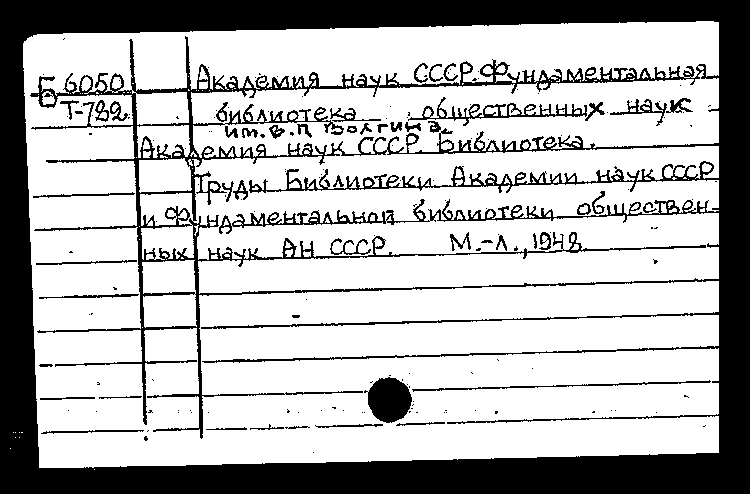 Б 6050 Академия наук СССР. Фундаментальная
Т-782 библиотека общественных наук
им. В.П. Волгина.
Академия наук СССР. Библиотека.
Труды Библиотеки Академии наук СССР
и Фундаментальной библиотеки обществен-
ных наук АН СССР. М.-Л., 1948